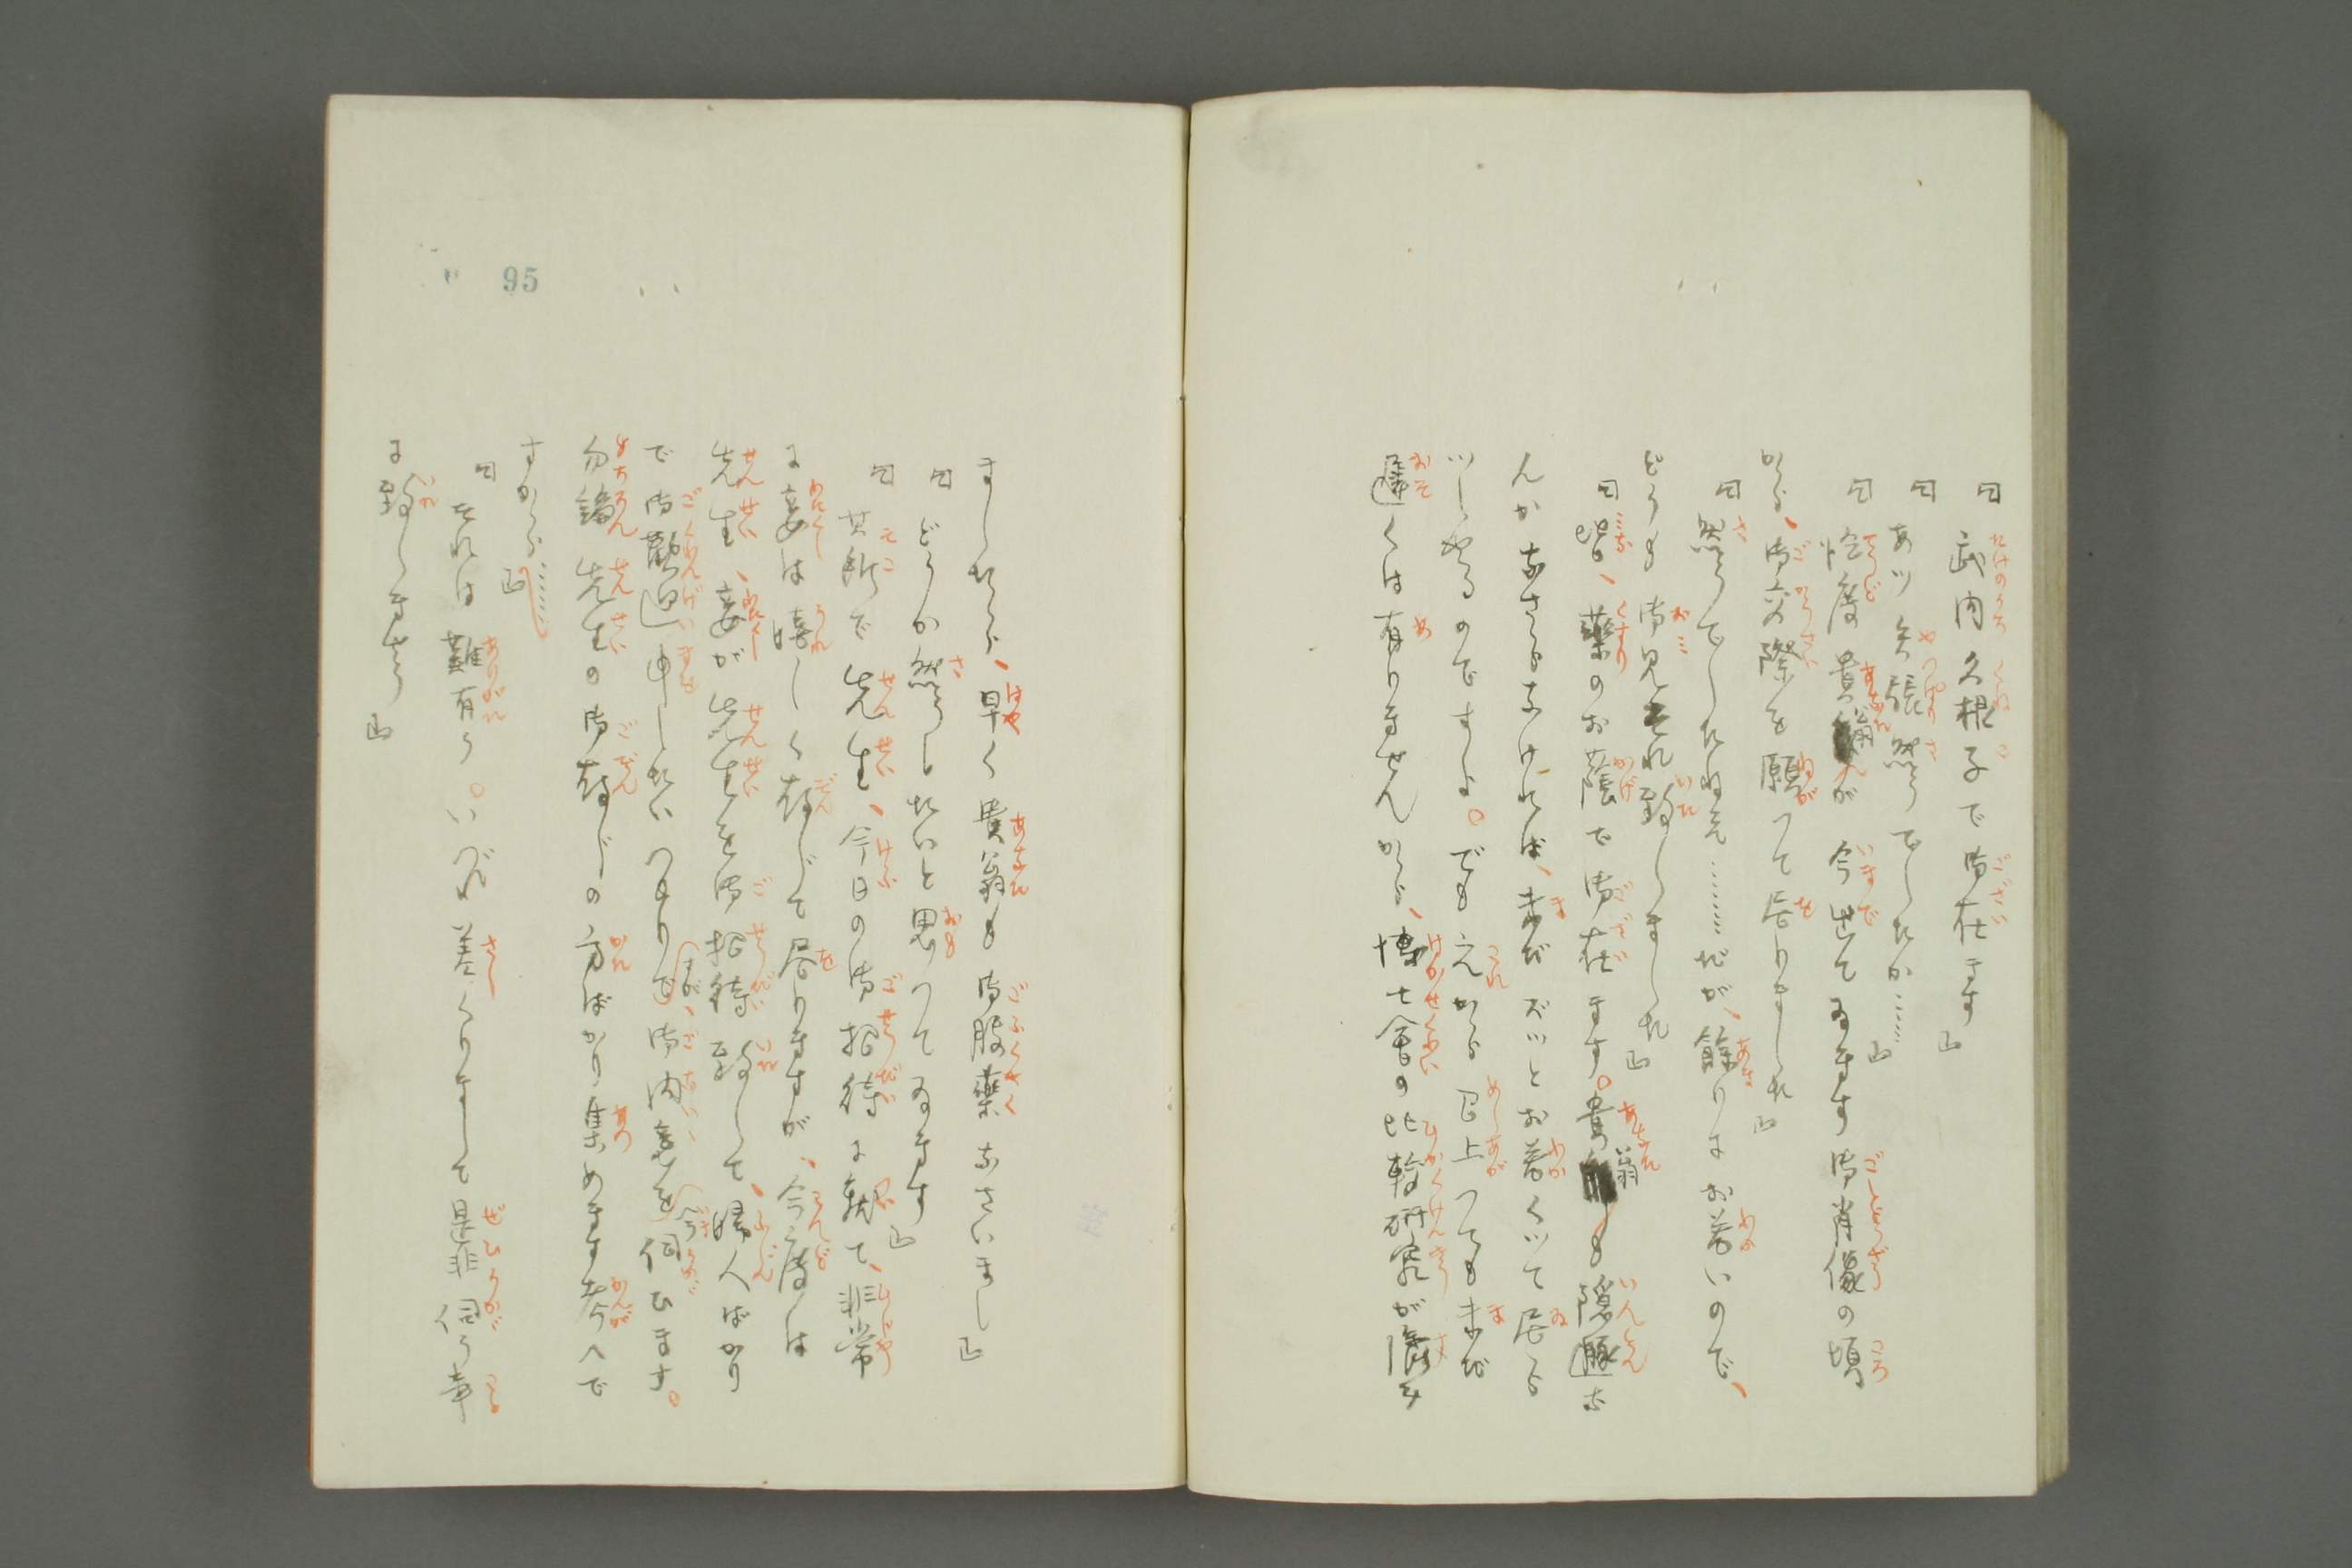 「武内久根子で御在ます」
「あツ矢張然うでしたか……」
「恰度貴翁が今出てゐます御肖像の頃
から、御交際を願つて居りました」
「然うでしたねえ………だが、餘りにお若いので、
どうも御見それ致しました」
「皆、藥のお蔭で御在ます。貴翁も隱遯な
んかなさらなければ、未だズツとお若くつて居ら
ツしやるのですよ。でも之から召上つても未だ
遲くは有りませんから、博士會の比較研究が濟み
ましたら、早く貴翁も御服藥なさいまし」
「どうか然うしたいと思つてゐます」
「其所で先生、今日の御招待に就て、非常
に妾は嬉しく存じて居りますが、今度は
先生、妾が先生を御招待致して、婦人ばかり
で御歡迎申したいつもりですが、御内意を伺ひます。
勿論先生の御存じの方ばかり集めます考へで
すから……」
「それは難有う。いづれ差くりまして是非伺う事
に致しませう」
95